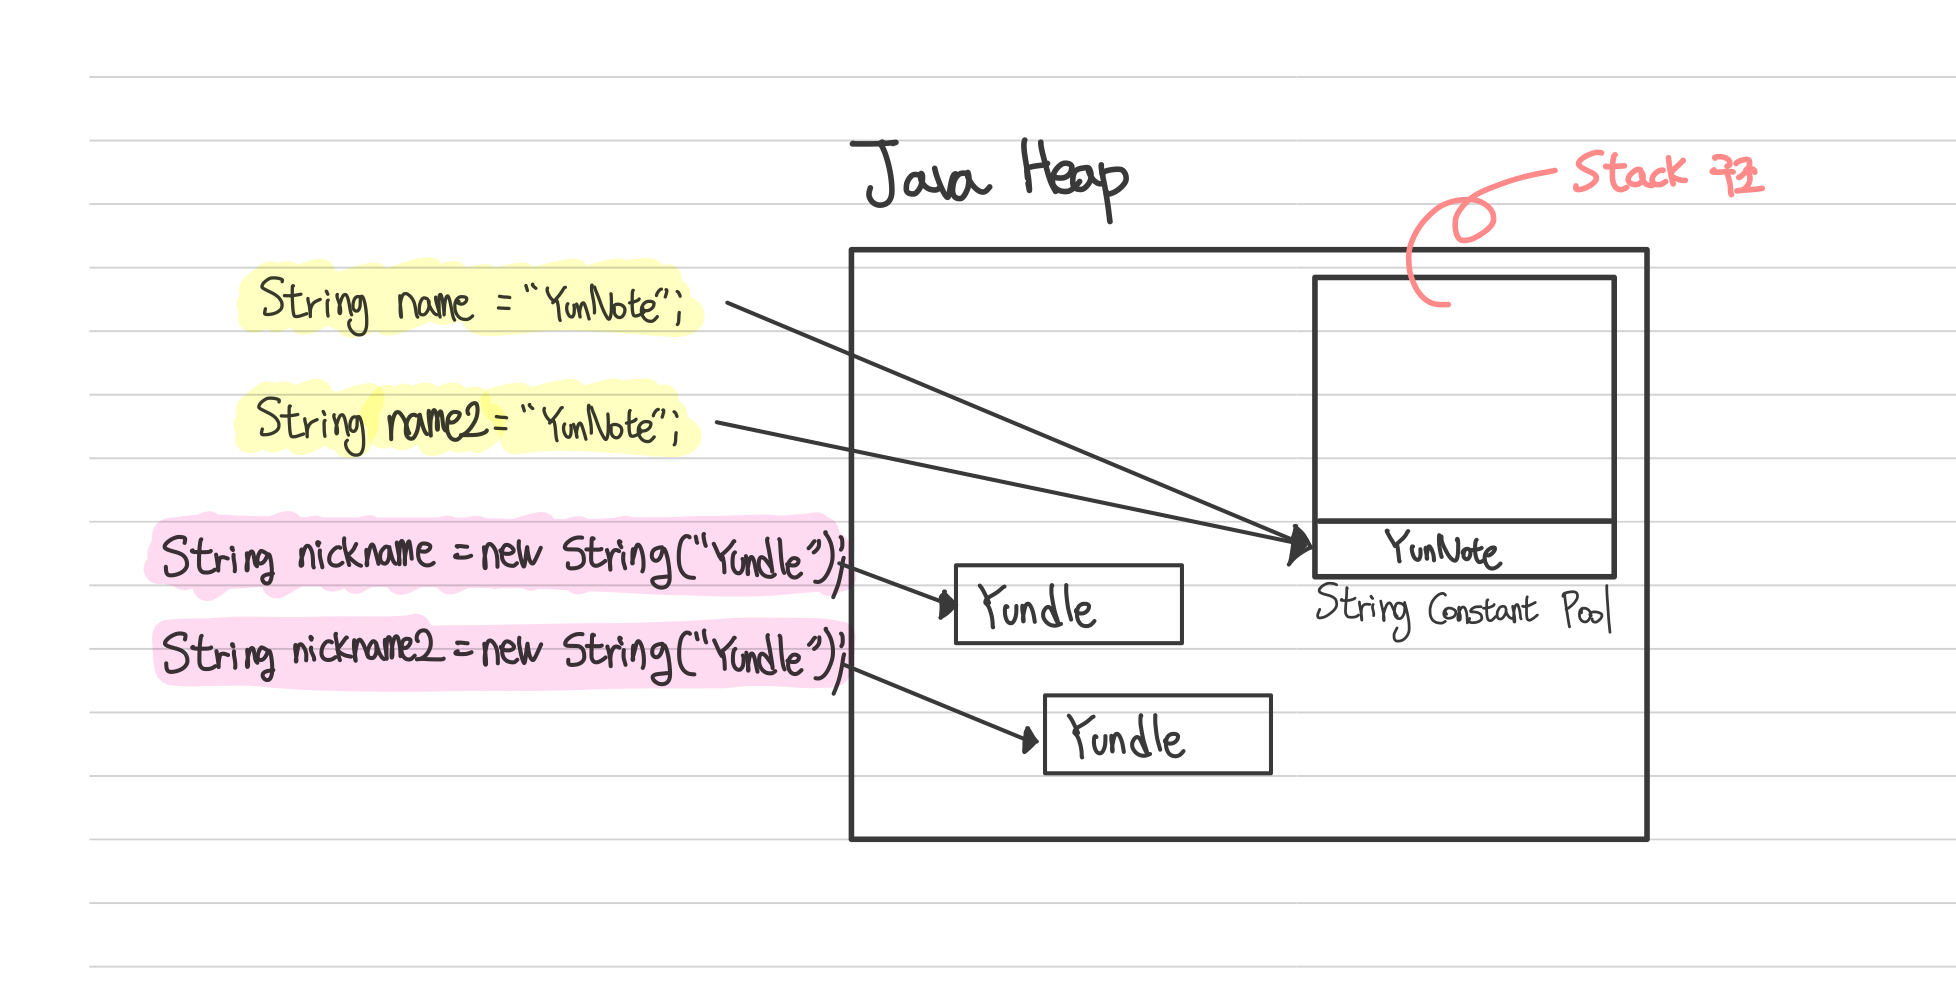 Java Heap
Stack 구조
String name = "YunNote";
String name2 = "YunNote";
String nickname = new String("Yundle");
String nickname2 = new String("Yundle");
YunNote
String Constant Pool
Yundle
Yundle